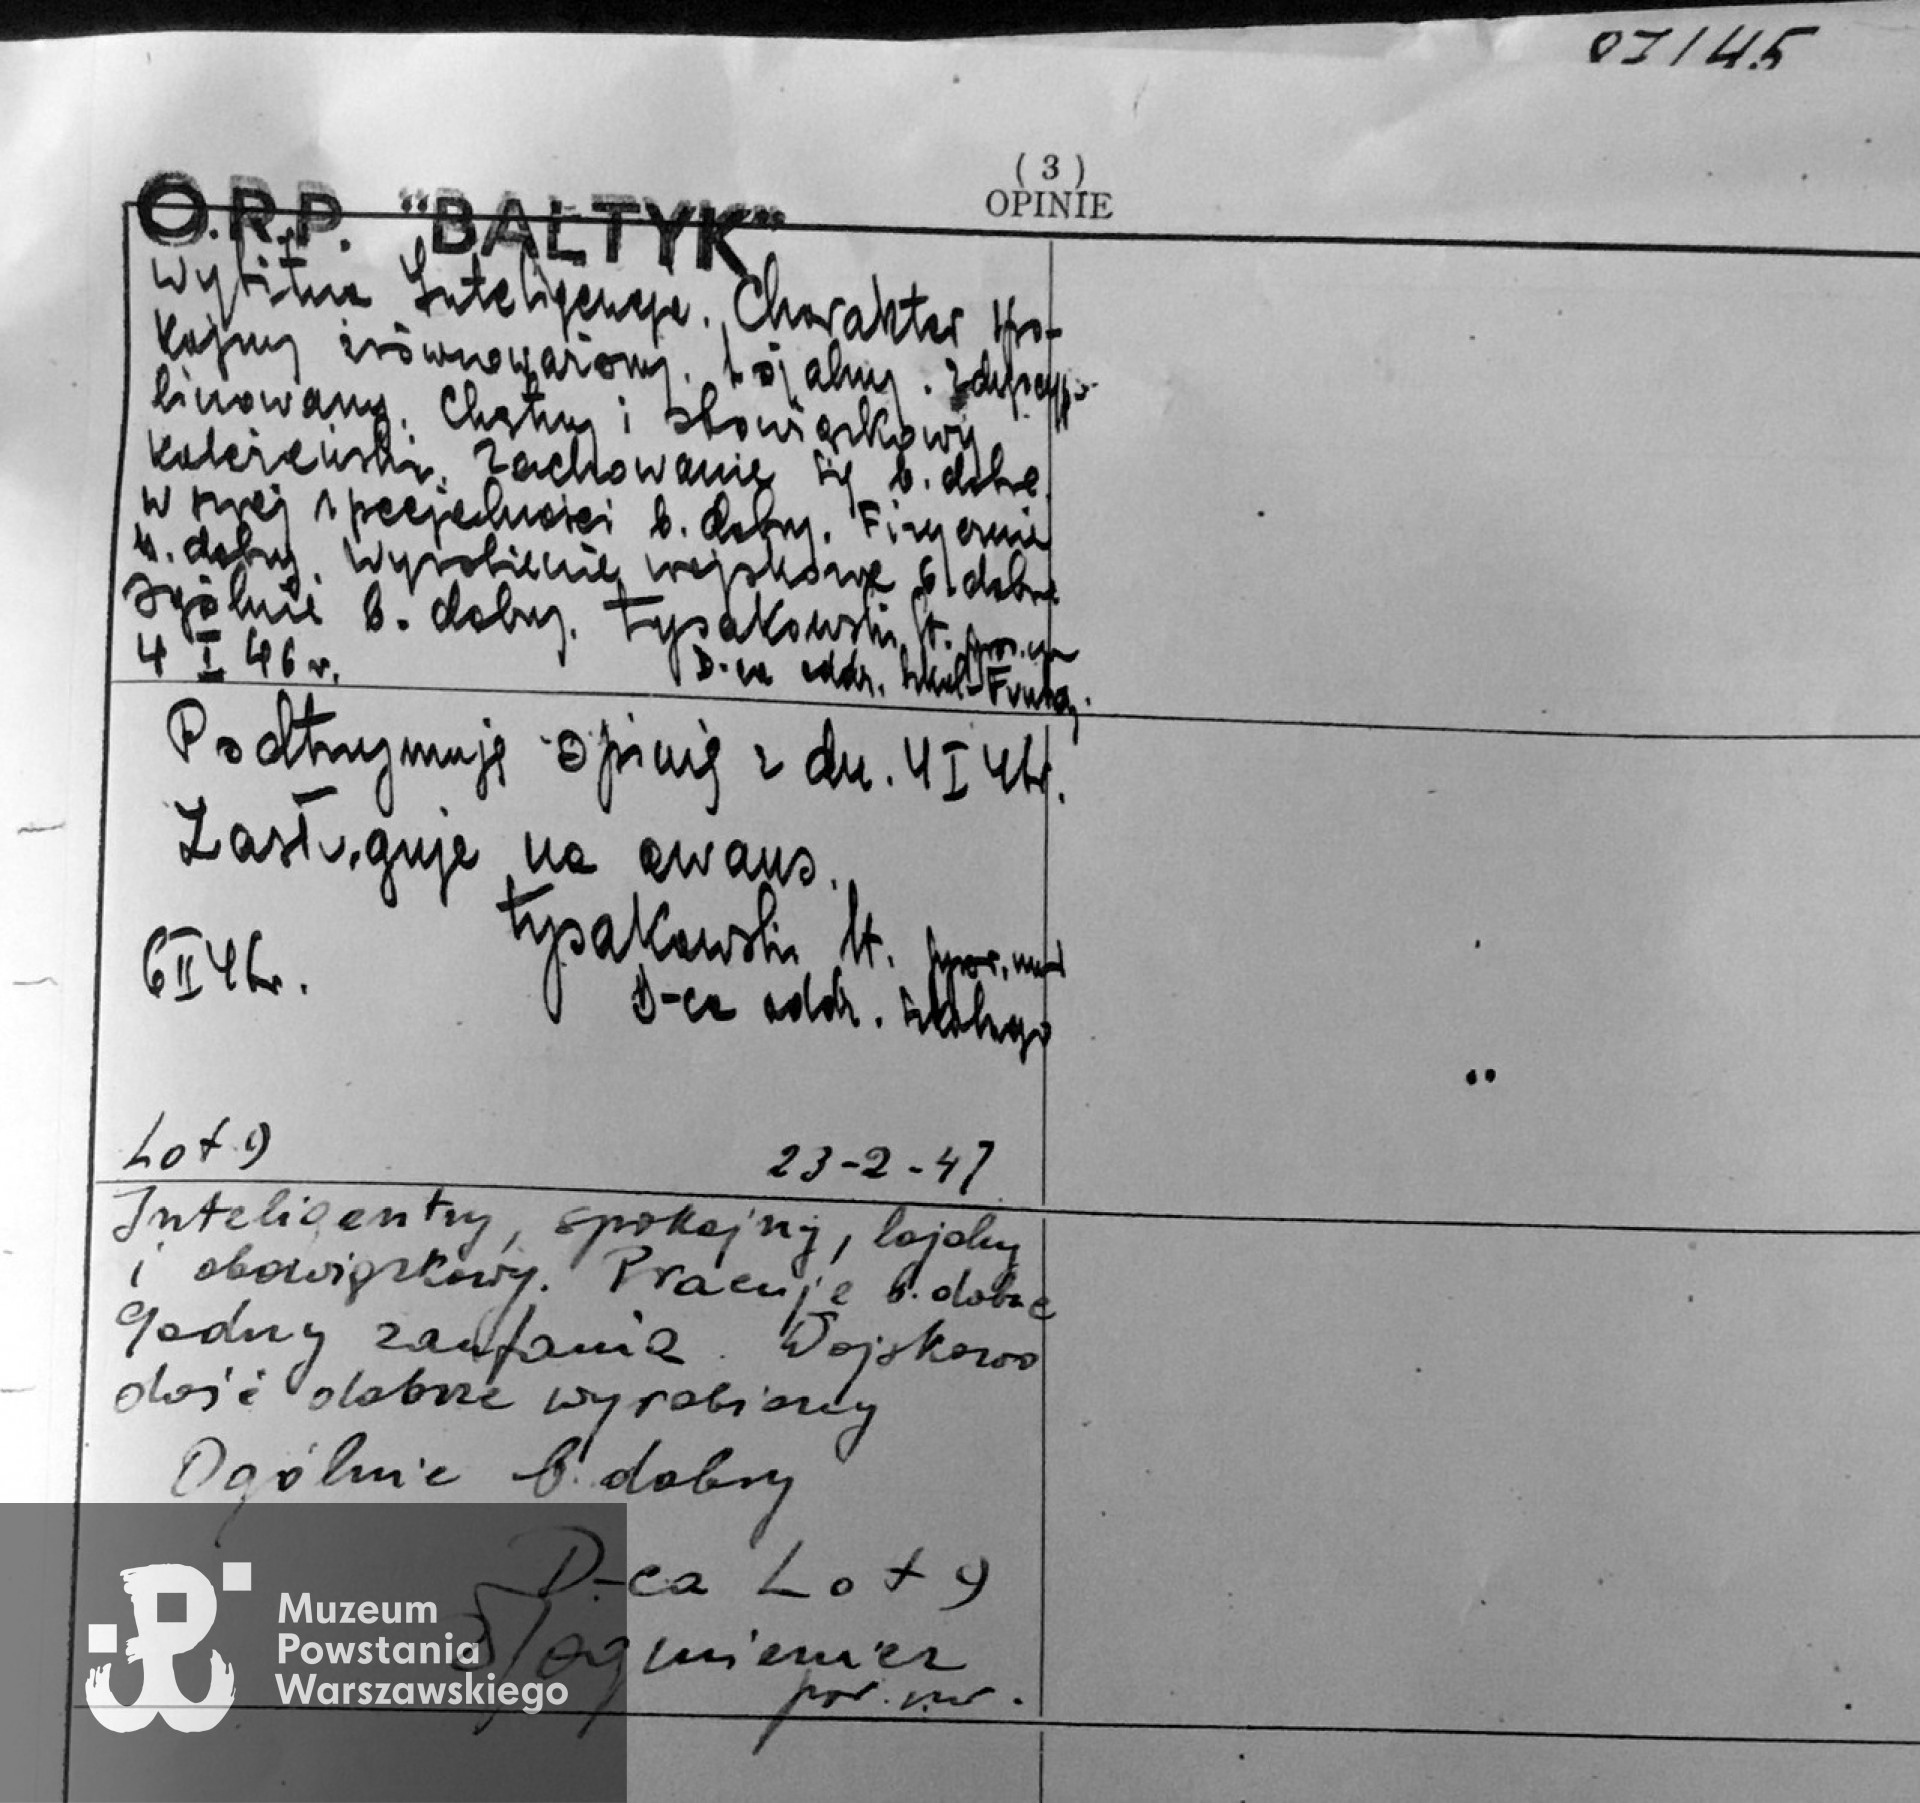 OI/45
( 3 )
OPINIE
O.R.P. "BAŁTYK"
Wybitna Inteligencja. Charakter spo-
kojny zrównoważony. Lojalny. Zdyscyp-
linowany. Chętny i obowiązkowy
koleżeński. Zachowanie się b. dobre.
w swej specjalności b. dobry. Fizycznie
b. dobry. Wyrobienie wojskowe b. dobre
Ogólnie b. dobry. Łysakowski st.
4 I 46 r. D-ca oddz. szkol-
Podtrzymuję opinię z dn. 4 I 46r.
Zasługuje na awans.
Łysakowski st.
6 II 46r. D-ca oddz. szkolnego
Lot 9 23-2-47
Inteligentny, spokojny, lojalny
i obowiązkowy. Pracuje b. dobrze
Godny zaufania. Wojskowo
dość dobrze wyrobiony
Ogólnie b. dobry
D-ca Lot 9
por. mar.
Muzeum
Powstania
Warszawskiego